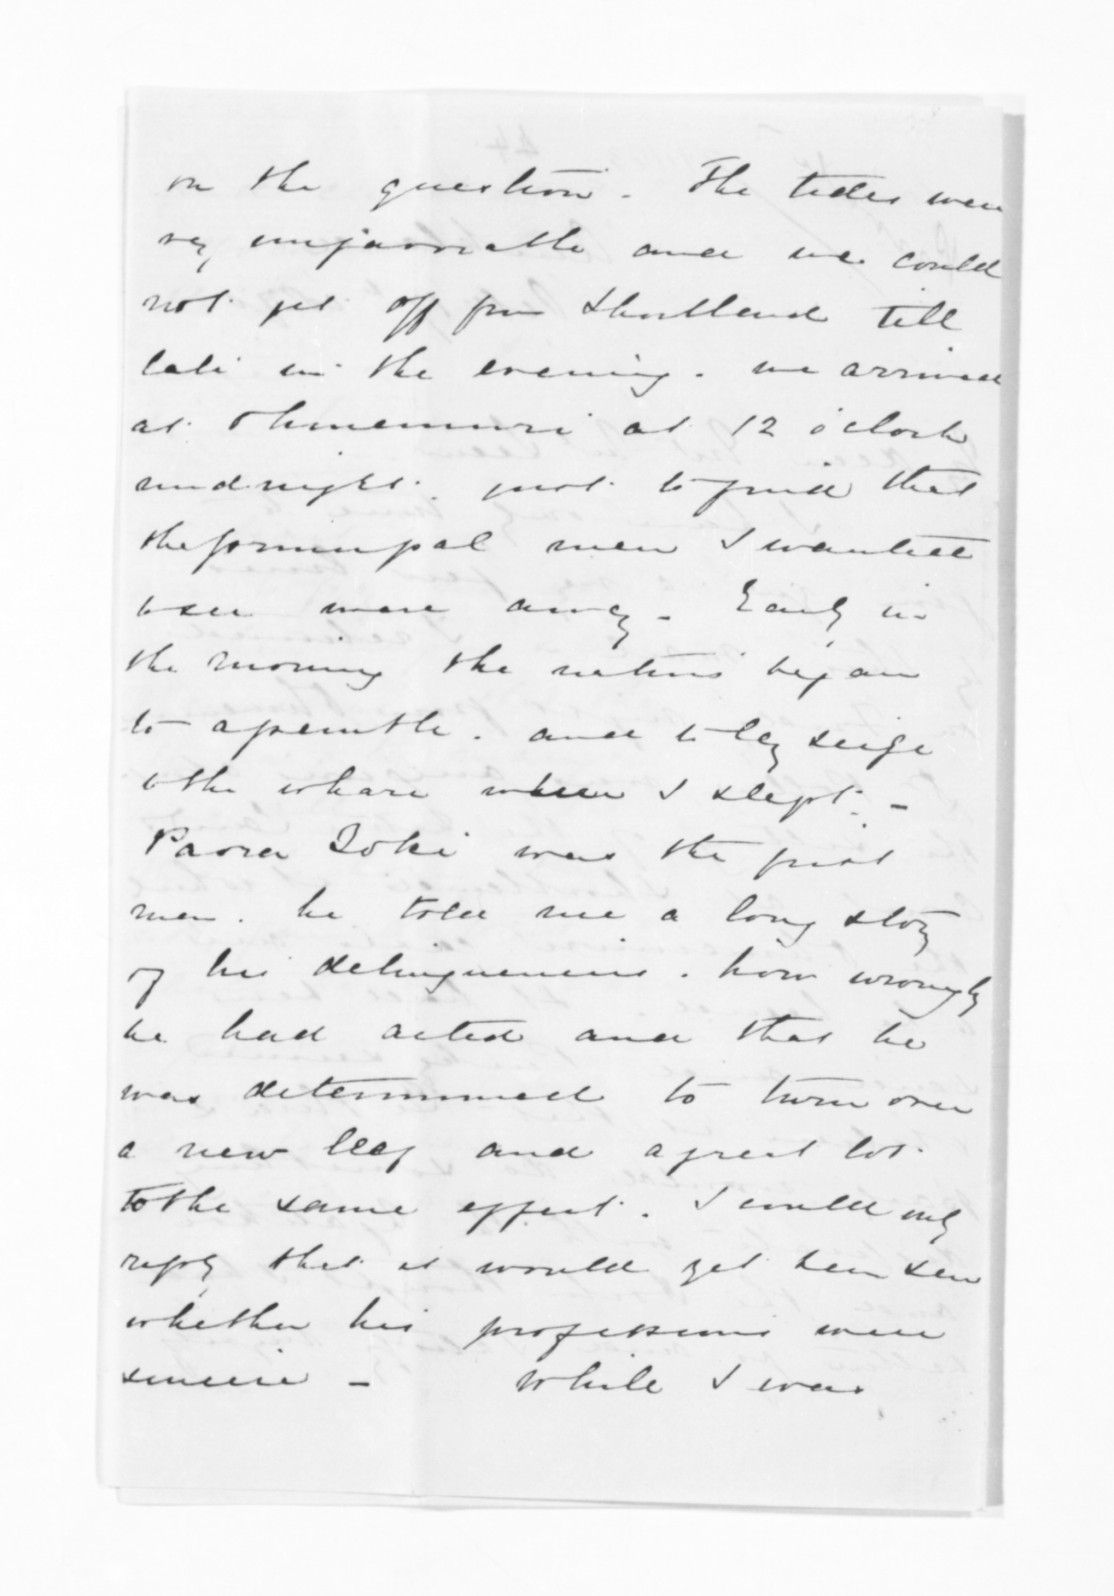 on the question. The tides were
vy unfavorable and we could
not get off from Shortland till
late in the evening. we arrived
at Ohinemuri at 12 o'clock
midnight. just to find that
the principal men I wanted
to see were away. Early in
the morning the natives began
to assemble. and to lay seige
to the whare where I slept. -
Paora Toki was the first
man. he told me a long story
of his delinquencies. how wrongly
he had acted and that he
was determined to turn over
a new leaf and a great lot
to the same effect. I could only
reply that it would yet be seen
whether his professions were
sincere - While I was